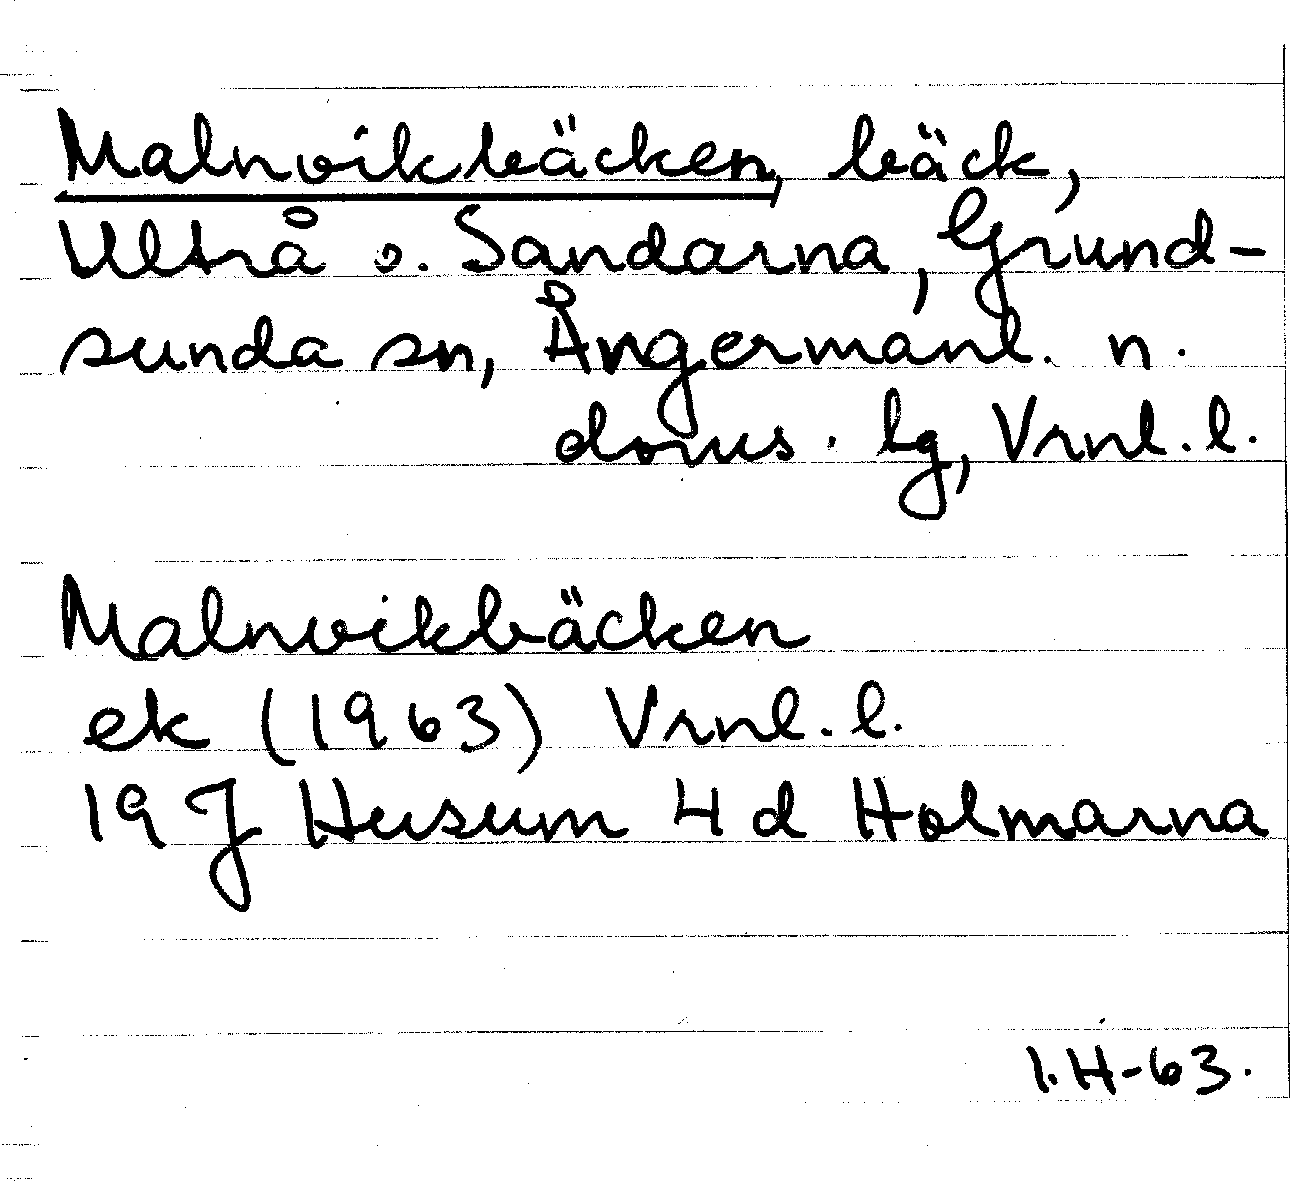 Malnvikbäcken, bäck,
Ultrå o. Sandarna, Grund-
sunda sn, Ångermanl. n.
doms. lg, Vrnl. l.
Malnvikbäcken
ek (1963) Vrnl. l.
19 J Husum 4 d Holmarna
I.H-63.